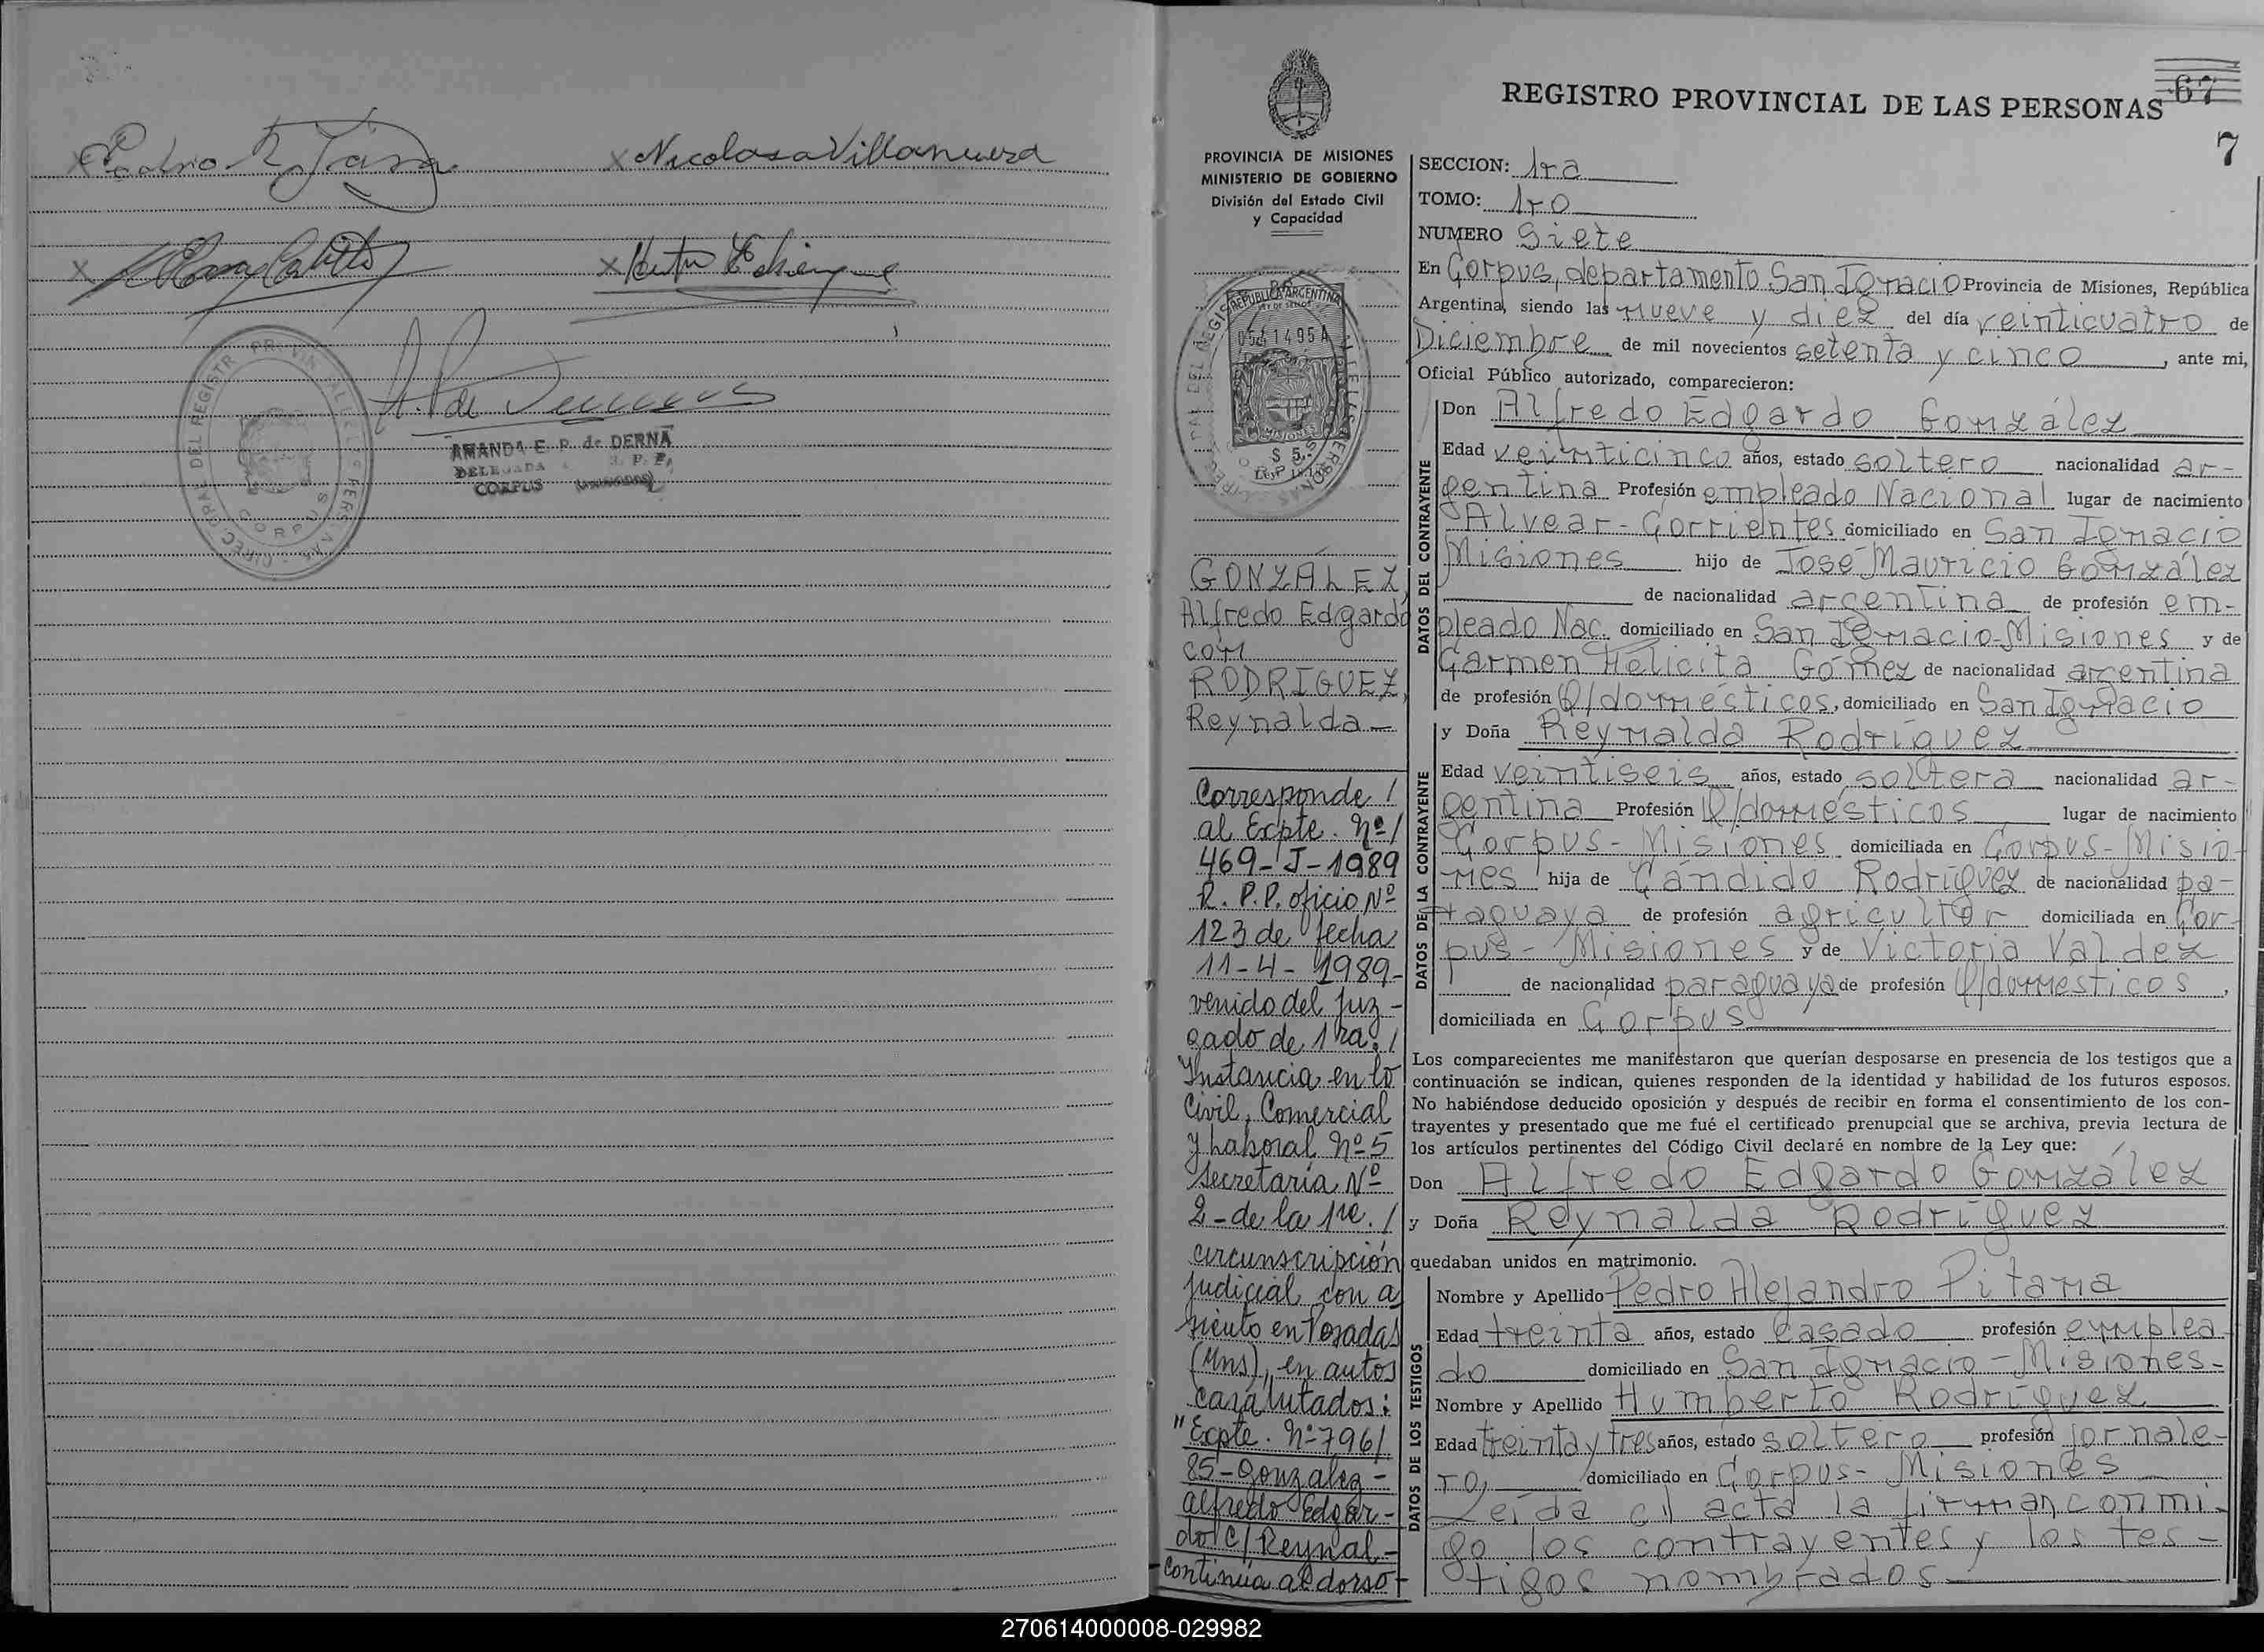 Pedro R Jara
Nicolasa Villanueva
AMANDA E. P. de DERNA
DELEGADA R. P. P.
CORPUS (MISIONES)
CORPUS
67
REGISTRO PROVINCIAL DE LAS PERSONAS
7
PROVINCIA DE MISIONES
MINISTERIO DE GOBIERNO
División del Estado Civil
y Capacidad
REPUBLICA ARGENTINA
LEY DE SELLOS
0541495 A
MISIONES
$ 5.-
GONZÁLEZ,
Alfredo Edgardo
con
RODRIGUEZ,
Reynalda—
Corresponde /
al Expte. Nº /
469-J-1989
R. P. P. oficio Nº
123 de fecha
11-4-1989-
venido del Juz-
gado de 1ra. /
Instancia en lo
Civil, Comercial
y Laboral Nº 5
Secretaría Nº
2-de la 1re. /
circunscripción
judicial con a
siento en Posadas
(Mns), en autos
caratutados:
"Ecpte. Nº 796/
85-Gonzalez-
Alfredo Edgar-
do C/ Reynal-
-continúa al dorso-
SECCION: 1ra
TOMO: 1ro
NUMERO Siete
En Corpus, departamento San Ignacio Provincia de Misiones, República
Argentina, siendo las nueve y diez del día veinticuatro de
Diciembre de mil novecientos setenta y cinco, ante mi,
Oficial Público autorizado, comparecieron:
DATOS DEL CONTRAYENTE
Don Alfredo Edgardo González
Edad veinticinco años, estado soltero nacionalidad ar-
gentina Profesión empleado Nacional lugar de nacimiento
Alvear-Corrientes domiciliado en San Ignacio
Misiones hijo de José Mauricio González
de nacionalidad argentina de profesión em-
pleado Nac. domiciliado en San Ignacio-Misiones y de
Carmen Helicita Gómez de nacionalidad argentina
de profesión Q/domésticos, domiciliado en San Ignacio
DATOS DE LA CONTRAYENTE
y Doña Reynalda Rodríguez
Edad veintiseis años, estado soltera nacionalidad ar-
gentina Profesión Q/domésticos lugar de nacimiento
Corpus-Misiones domiciliada en Corpus-Misio-
nes hija de Cándido Rodríguez de nacionalidad pa-
raguaya de profesión agricultor domiciliada en Cor-
pus-Misiones y de Victoria Valdez
de nacionalidad paraguaya de profesión Q/domesticos,
domiciliada en Corpus
Los comparecientes me manifestaron que querían desposarse en presencia de los testigos que a
continuación se indican, quienes responden de la identidad y habilidad de los futuros esposos.
No habiéndose deducido oposición y después de recibir en forma el consentimiento de los con-
trayentes y presentado que me fué el certificado prenupcial que se archiva, previa lectura de
los artículos pertinentes del Código Civil declaré en nombre de la Ley que:
Don Alfredo Edgardo González
y Doña Reynalda Rodríguez
quedaban unidos en matrimonio.
DATOS DE LOS TESTIGOS
Nombre y Apellido Pedro Alejandro Pitana
Edad treinta años, estado Casado profesión emplea-
do domiciliado en San Ignacio-Misiones-
Nombre y Apellido Humberto Rodríguez
Edad treinta y tres años, estado soltero profesión jornale-
ro, domiciliado en Corpus-Misiones
Leída el acta la firman conmi-
go los contrayentes y los tes-
tigos nombrados
270614000008-029982